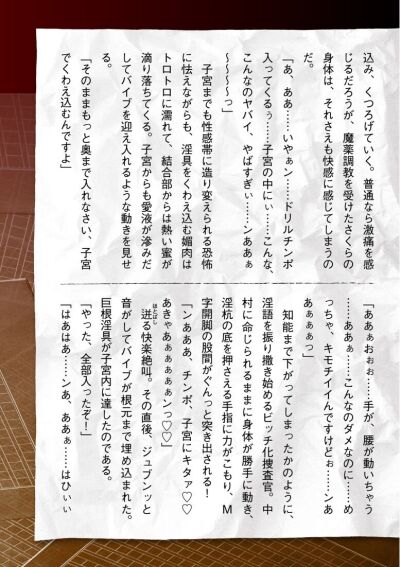 込み、くつろげていく。普通なら激痛を感
じるだろうが、魔薬調教を受けたさくらの
身体は、それさえも快感に感じてしまうの
だ。
「あ、ああ……いやぁン……ドリルチンポ
入ってくるぅ……子宮の中にぃ……こんな、
こんなのヤバイ、やばすぎぃ……ンああぁ
~~~~っ」
子宮までも性感帯に造り変えられる恐怖
に怯えながらも、淫具をくわえ込む媚肉は
トロトロに濡れて、結合部からは熱い蜜が
滴り落ちてくる。子宮からも愛液が滲みだ
してバイブを迎え入れるような動きを見せ
る。
「そのままもっと奥まで入れなさい、子宮
でくわえ込むんですよ」
「ああぁおぉぉ……手が、腰が動いちゃう
……ああぁ……こんなのダメなのに……め
っちゃ、キモチイイんですけどぉ……ンあ
あぁぁぁっ」
知能まで下がってしまったかのように、
淫語を振り撒き始めるビッチ化捜査官。中
村に命じられるままに身体が勝手に動き、
淫杭の底を押さえる手指に力がこもり、M
字開脚の股間がぐんっと突き出される!
「ンあああ、チンポ、子宮にキタァ♡♡
あきゃあぁぁぁぁぁンっ♡♡」
迸る快楽絶叫。その直後、ジュブンッと
音がしてバイブが根元まで埋め込まれた。
巨根淫具が子宮内に達したのである。
「やった、全部入ったぞ!」
「はあはあ……ンあ、ああぁ……はひぃぃ